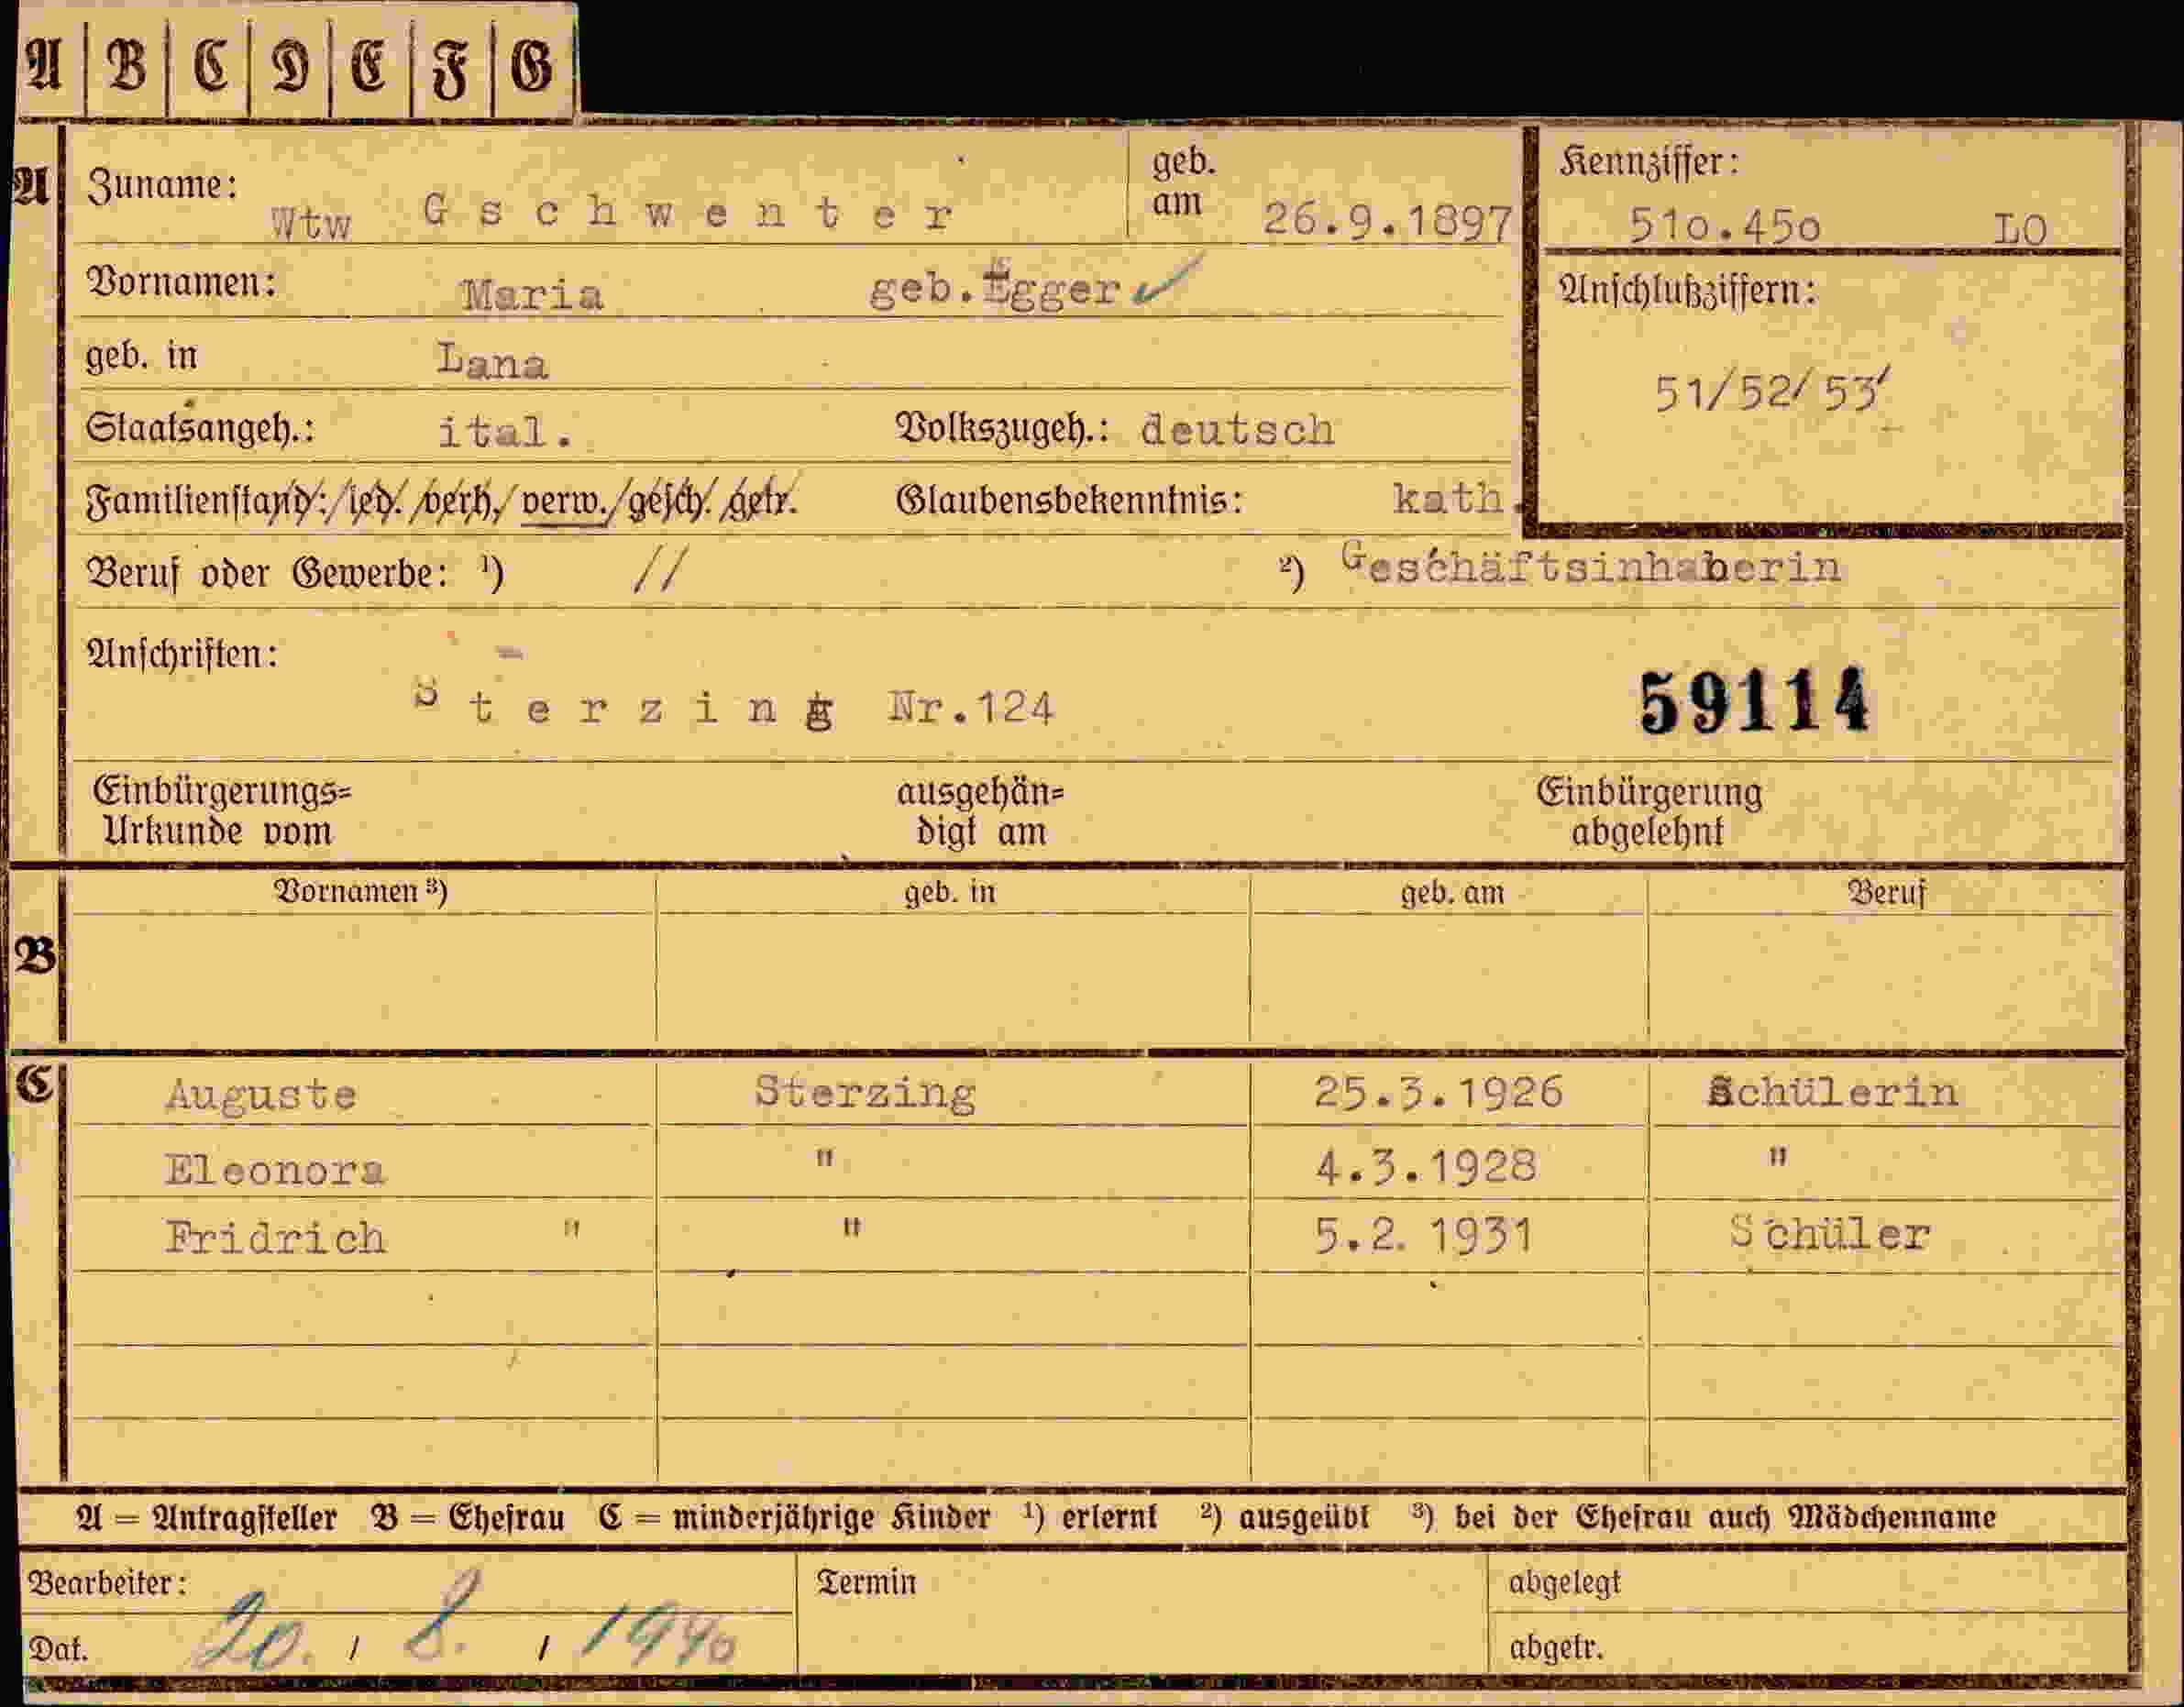 A | B | C | D | E | F | G
A Zuname: Wtw Gschwenter geb. am 26.9.1897
Kennziffer: 51o.45o LO
Vornamen: Maria geb.Egger ✓
Anschlußziffern:
51/52/53
geb. in Lana
Staatsangeh.: ital. Volkszugeh.: deutsch
Familienstand: led. verh. verw. gesch. getr. Glaubensbekenntnis: kath.
Beruf oder Gewerbe: ¹) // ²) Geschäftsinhaberin
Anschriften:
Sterzing Nr.124
59114
Einbürgerungs=
Urkunde vom
ausgehän=
digt am
Einbürgerung
abgelehnt
Vornamen ³) geb. in geb. am Beruf
B
C Auguste Sterzing 25.3.1926 Schülerin
Eleonora " 4.3.1928 "
Fridrich " " 5.2. 1931 Schüler
A = Antragsteller B = Ehefrau C = minderjährige Kinder ¹) erlernt ²) ausgeübt ³) bei der Ehefrau auch Mädchenname
Bearbeiter: Termin abgelegt
Dat. 20. / 8. / 1940 abgetr.